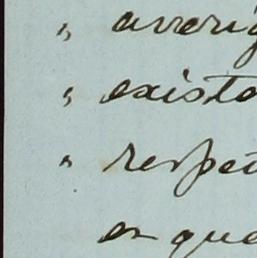 " averig
" exista
" respet
en que